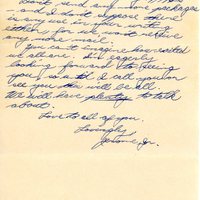 Don't send any more packages
and I don't suppose there
is any use in your writing
either for we won't receive
any more mail.
You can't imagine how excited
we all are. I'm eagerly
looking forward to seeing
you, so until I call you or
see you this will be all.
We will have plenty to talk
about.
Love to all of you.
Lovingly,
Jerome, Jr.